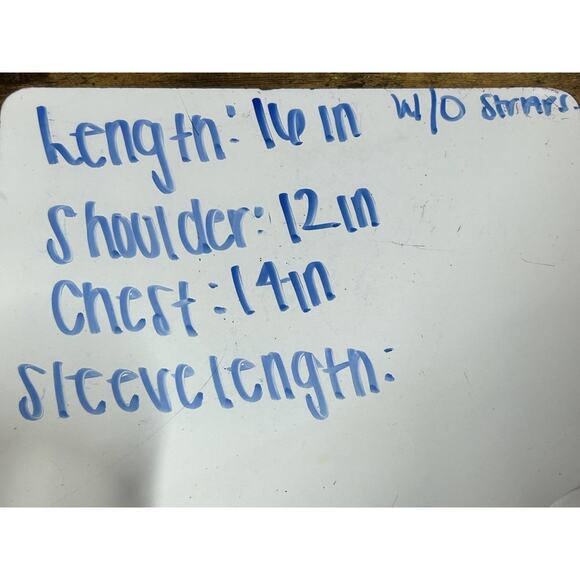 Length: 16 in W/O Straps.
Shoulder: 12in
Chest: 14in
Sleeve length: